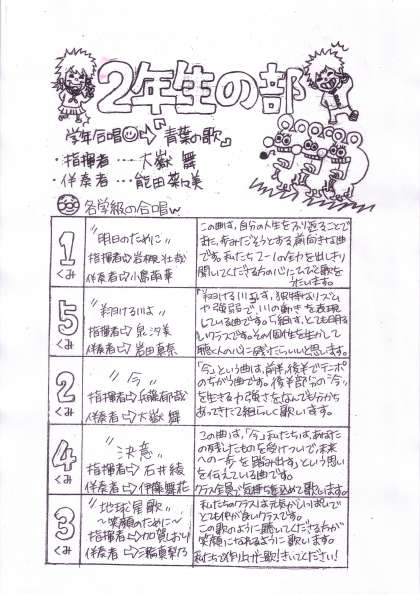 2年生の部
学年合唱⇨『青葉の歌』
・指揮者 … 大嶽 舞
・伴奏者 … 能田 菜々美
各学級の合唱
1くみ
"明日のために"
指揮者⇨岩根 壮哉
伴奏者⇨小島 南華
この曲は、自分の人生をふり返ることで
また、歩みだそうとする前向きな曲
です。私たち2-1の全力を出しきり
聞いてくださる方の心にひびく歌を
うたいます。
5くみ
"翔ける川よ"
指揮者⇨泉 汐美
伴奏者⇨岩田 真奈
「翔ける川よ」は、独特なリズム
や強弱で、川の動きを表現
している曲です。5組は、とても明る
いクラスです。その個性を生かして
聴く人の心に残けたらいいと思います。
2くみ
"今"
指揮者⇨佐藤 郁哉
伴奏者⇨大嶽 舞
「今」という曲は、前半、後半でテンポ
のちがう曲です。後半部分の"今"
を生きる力強さをなんでも分から
あってきた2組らしく歌います。
4くみ
"決意"
指揮者⇨石井 綾
伴奏者⇨伊藤 舞花
この曲は、「今」私たちは、あなた
の残したものを受けついで、未来
への一歩を踏み出す。」という思い
を伝えている曲です。
クラス全員で気持ちを込めて歌います。
3くみ
"地球星歌"
～笑顔のために～
指揮者⇨加賀 しおり
伴奏者⇨三輪 真梨乃
私たちのクラスは元気がいっぱいで
とても仲が良いクラスです。
この歌のように聴いてくださる方が
笑顔になれるように歌います。
私たちで作り上げた歌!きいてください!